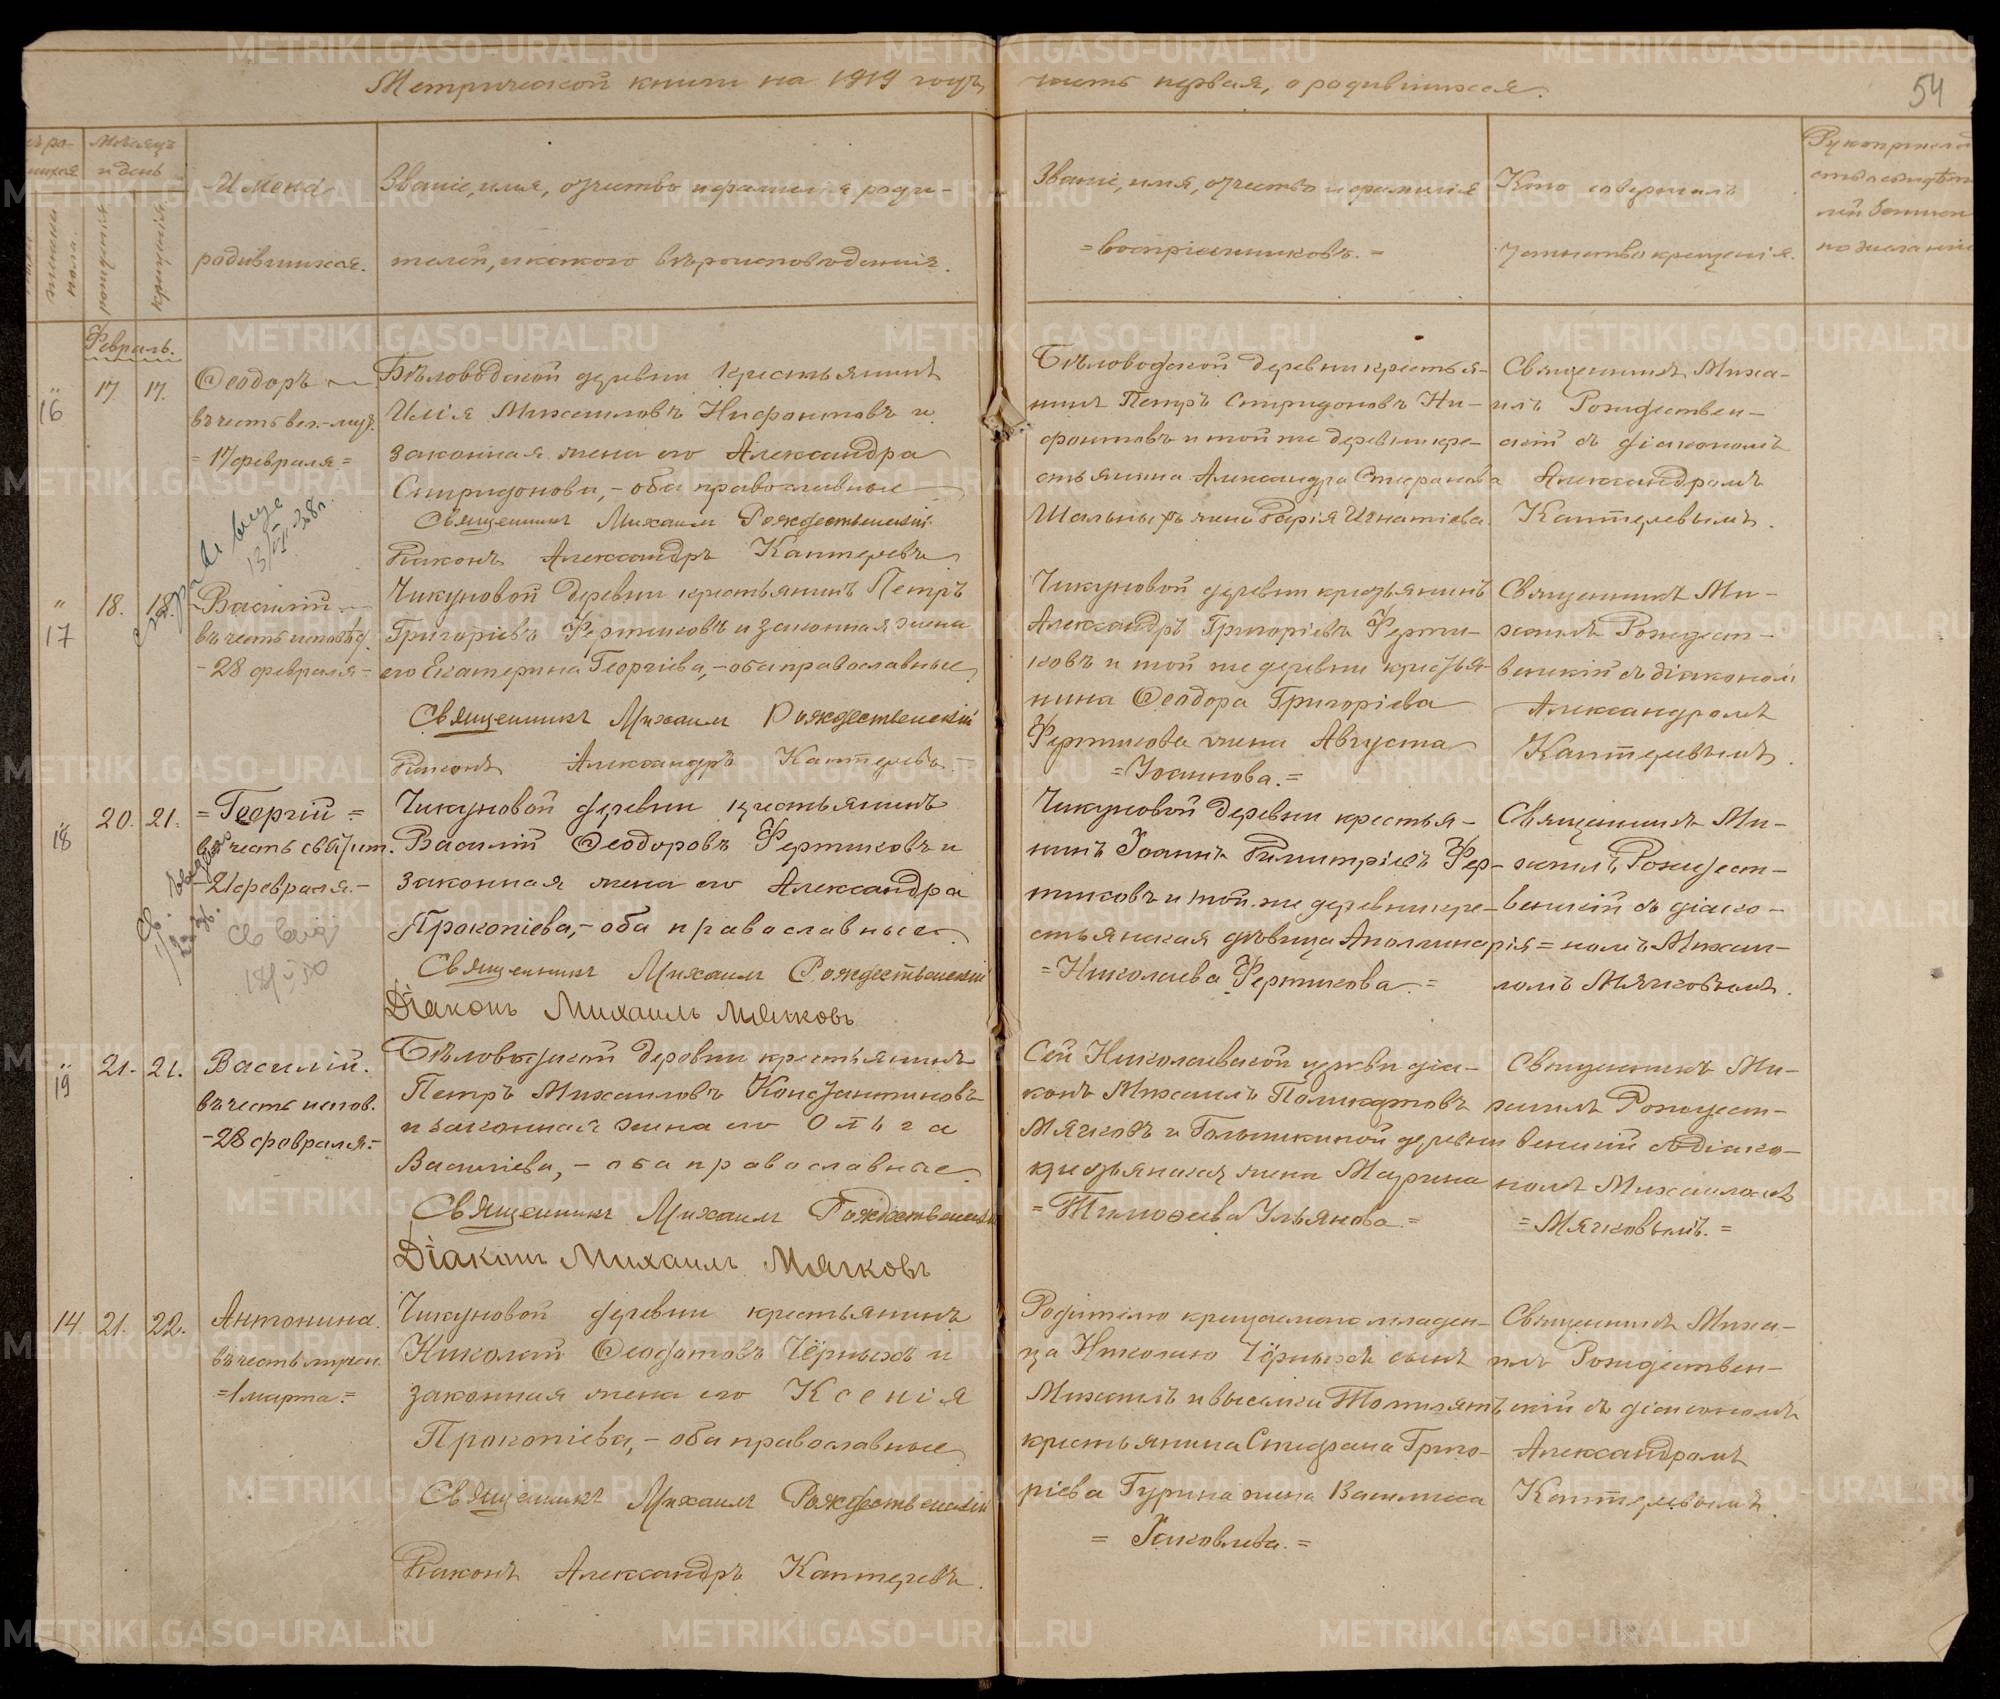 Метрической книги на 1919 годъ часть первая, о родившихся.
54
Мѣсяцъ
и день
рожденія
крещенія
женска
пола.
Имена
родившихся.
Званіе, имя, отчество и фамилія роди-
телей, и какого вѣроисповѣданія.
Званіе, имя, отчество и фамилія
=воспріемниковъ.=
Кто совершалъ
таинство крещенія.
Рукоприклад
ство свидѣте
лей записи
по желанію
Февраль.
16
17 17.
Ѳеодоръ
въ честь вел.-муч.
=17 февраля=
Бѣловодской деревни крестьянинъ
Илія Михаиловъ Нифонтовъ и
законная жена его Александра
Спиридонова,-оба православные
Священникъ Михаилъ Рождественскій
Діаконъ Александръ Каптеревъ
Бѣловодской деревни крестья-
нинъ Петръ Спиридоновъ Ни-
фонтовъ и той же деревни кре-
стьянина Александра Стефанова
Шальныхъ жена Дарія Игнатіева.
Священникъ Миха-
илъ Рождествен-
скій съ діакономъ
Александромъ
Каптеревымъ.
17
18. 18.
Василій
въ честь исповѣд.
-28 февраля-
Чикуновой деревни крестьянинъ Петръ
Григоріевъ Фертиковъ и законная жена
его Екатерина Георгіева,-оба православные
Священникъ Михаилъ Рождественскій
Діаконъ Александръ Каптеревъ.-
Чикуновой деревни крестьянинъ
Александръ Григоріевъ Ферти-
ковъ и той же деревни крестья-
нина Ѳеодора Григоріева
Фертикова жена Августа
=Іоаннова.=
Священникъ Ми-
хаилъ Рождест-
венскій съ діакономъ
Александромъ
Каптеревымъ.
18
20. 21.
=Георгій=
въ честь святит.
-21 февраля.-
Чикуновой деревни крестьянинъ
Василій Ѳеодоровъ Фертиковъ и
законная жена его Александра
Прокопіева,-оба православные.
Священникъ Михаилъ Рождественскій
Діаконъ Михаилъ Мягковъ
Чикуновой деревни крестья-
нинъ Іоаннъ Димитріевъ Фер-
тиковъ и той же деревни кре-
стьянская дѣвица Аполлинарія=
=Николаева Фертикова.=
Священникъ Ми-
хаилъ Рождест-
венскій съ діако-
номъ Михаи-
ломъ Мягковымъ.
19
21. 21.
Василій.
въ честь испов.
-28 февраля=
Бѣловодской деревни крестьянинъ
Петръ Михаиловъ Константиновъ
и законная жена его Ольга
Василіева,-оба православные
Священникъ Михаилъ Рождественскій
Діаконъ Михаилъ Мягковъ
Сей Николаевской церкви діа-
конъ Михаилъ Поликарповъ
Мягковъ и Гольчикиной деревни
крестьянская жена Марина
=Тимоѳеева Ульянова.=
Священникъ Ми-
хаилъ Рождест-
венскій съ діако-
номъ Михаиломъ
=Мягковымъ.=
14. 21. 22.
Антонина.
въ честь мучен.
=1 марта=
Чикуновой деревни крестьянинъ
Николай Ѳеофатовъ Чёрныхъ и
законная жена его Ксенія
Прокопіева,-оба православные
Священникъ Михаилъ Рождественскій
Діаконъ Александръ Каптеревъ.
Родителю крещаемаго младен-
ца Николаю Чёрныхъ сынъ
Михаилъ и выселка
крестьянина Стефана Григо-
ріева Гурина жена Василиса
= Іаковлева.=
Священникъ Миха-
илъ Рождествен-
скій съ діакономъ
Александромъ
Каптеревымъ.
METRIKI.GASO-URAL.RU